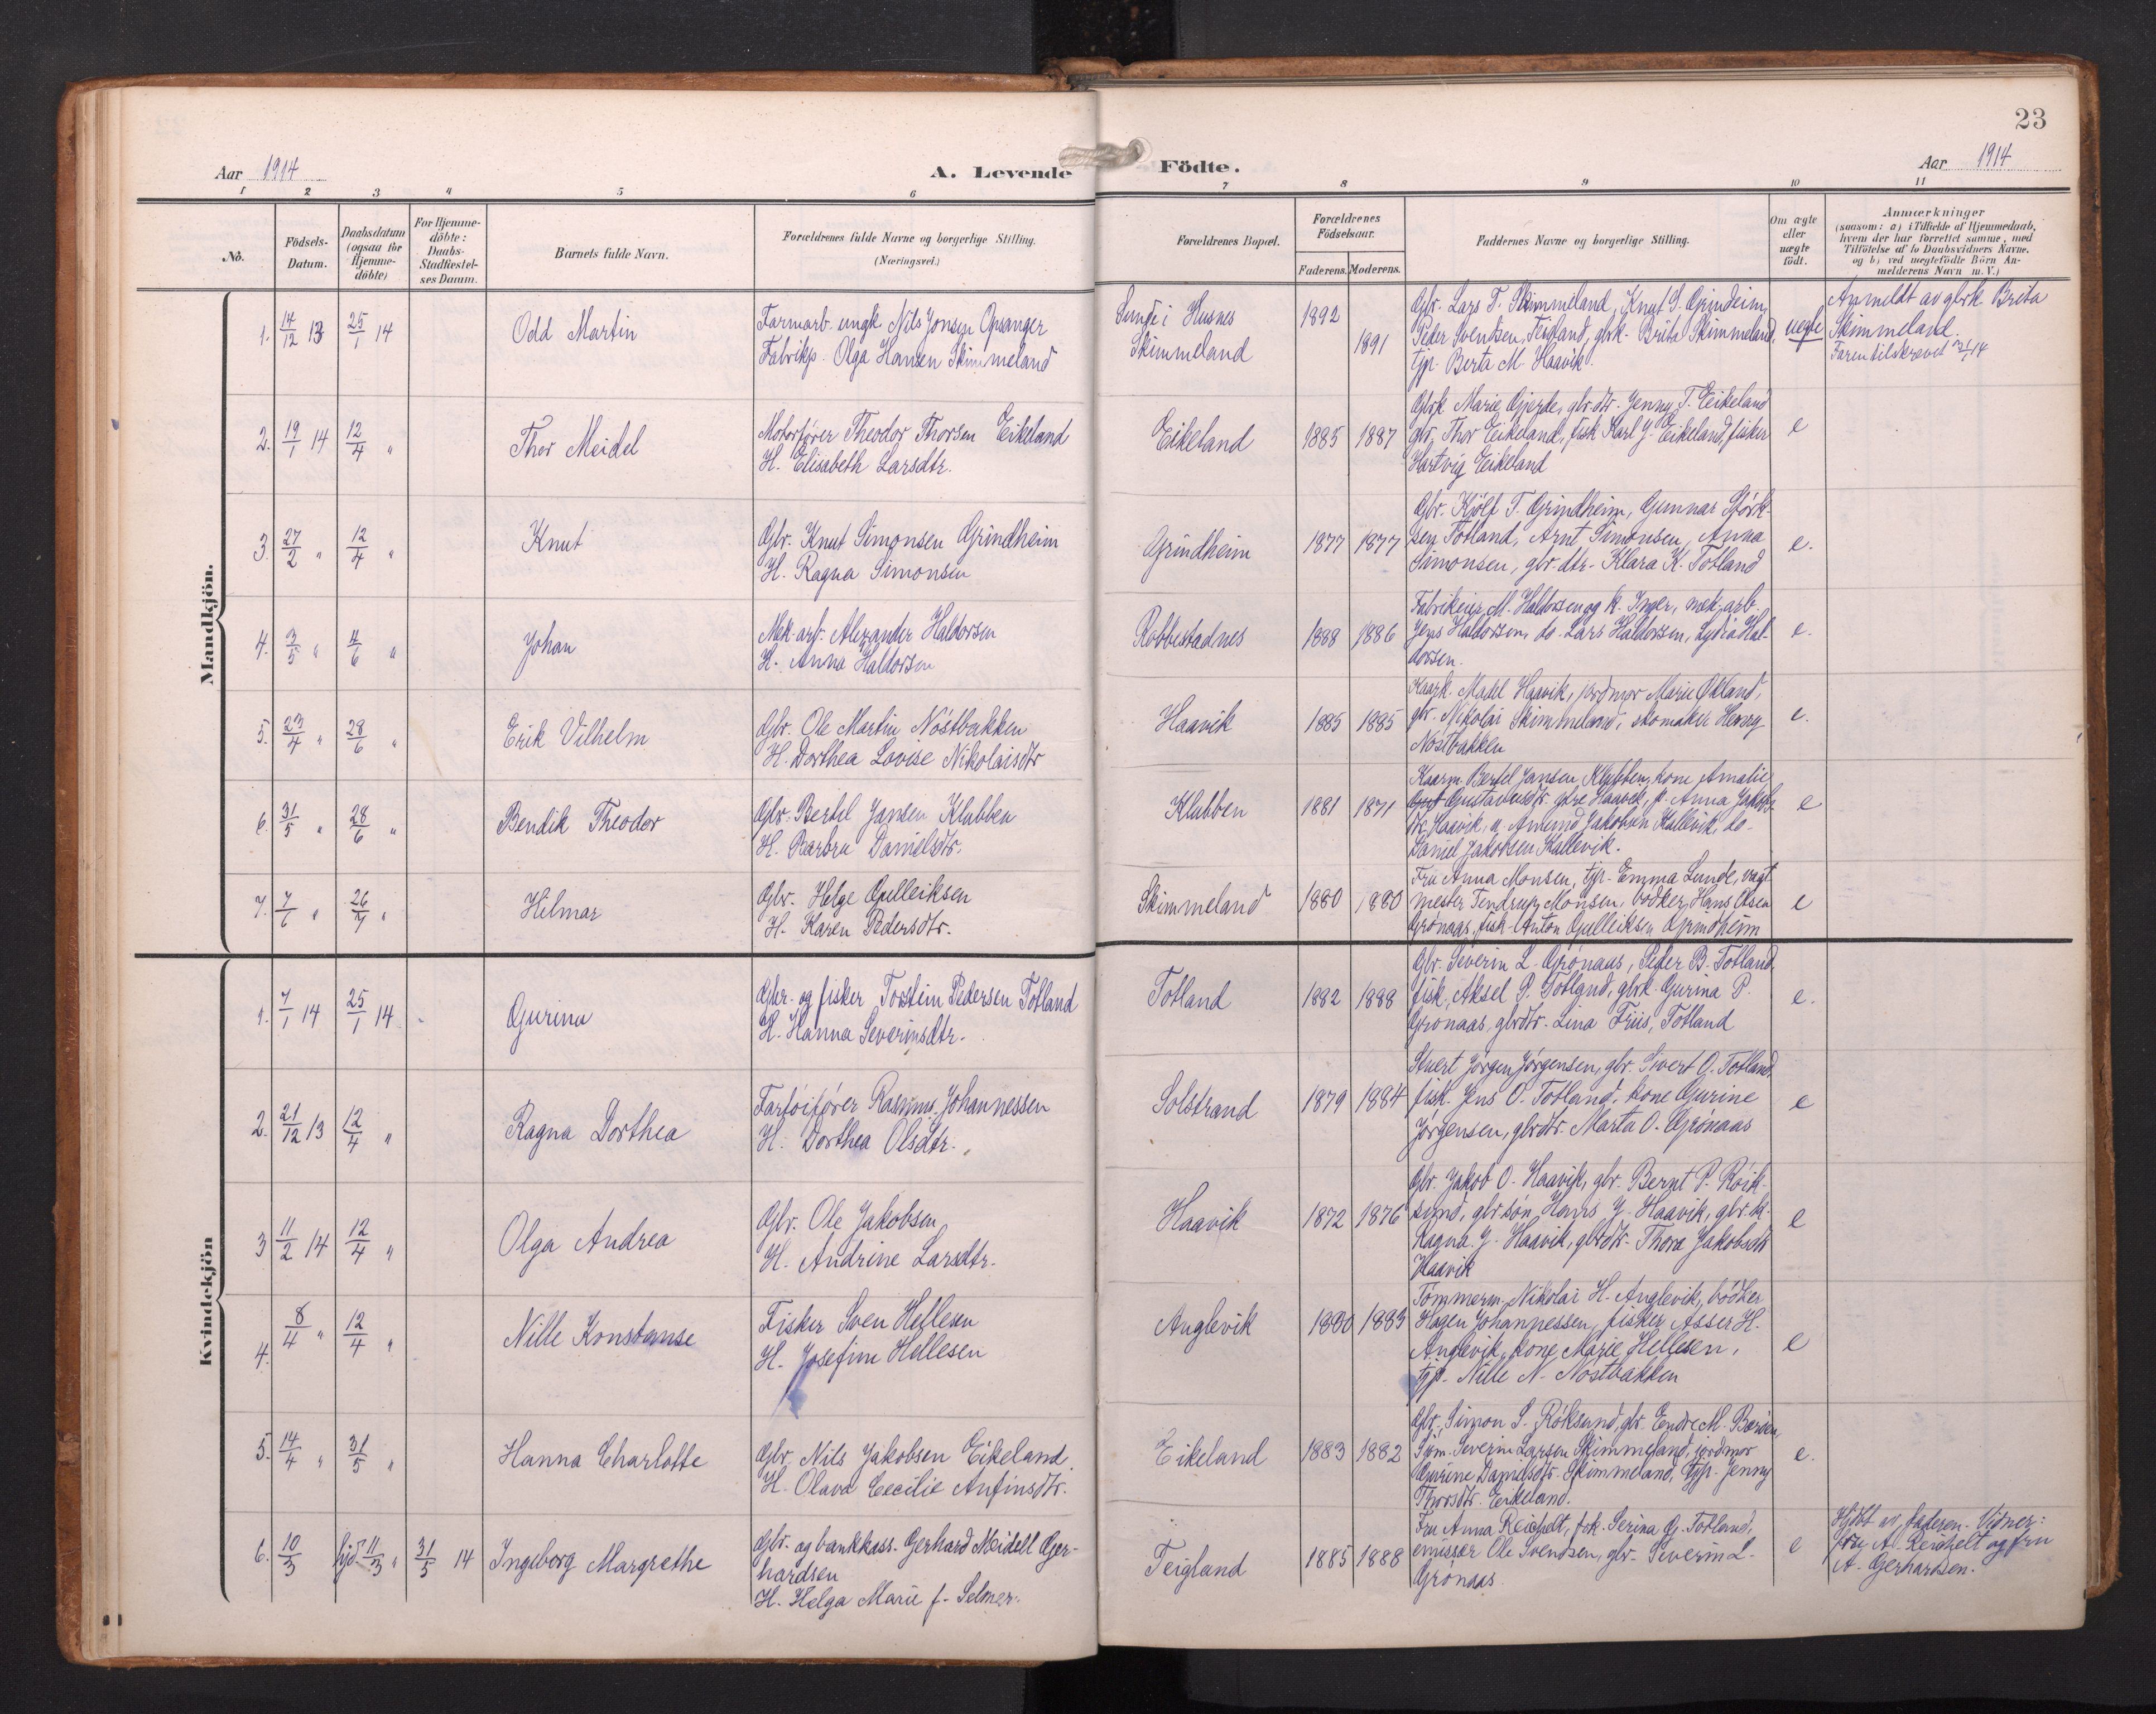 23
Aar 1914
A. Levende Födte.
Aar 1914
1 2 3 4 5 6 7 8 9 10 11
No.
Födsels-
Datum.
Daabsdatum
(ogsaa for
Hjemme-
döbte)
For Hjemme-
döbte:
Daabs-
Stadfæstel-
ses Datum.
Barnets fulde Navn.
Forældrenes fulde Navne og borgerlige Stilling.
(Næringsvei.)
Forældrenes Bopæl.
Forældrenes
Födselsaar.
Faderens. Moderens.
Faddernes Navne og borgerlige Stilling.
Om ægte
eller
uægte
födt.
Anmærkninger
(saasom: a) i Tilfælde af Hjemmedaab,
hvem der har forrettet samme, med
Tilföielse af to Daabsvidners Navne,
og b) ved uægtefödte Börn An-
melderens Navn m. V.)
Mandkjön.
1. 14/12 13 25/1 14
Odd Martin
Farmarb. ungk Nils Jonsen Opsanger
Fabrikp. Olga Hansen Skimmeland
Sunde i Husnes
Skimmeland
1892
1891
Gbr. Lars T. Skimmeland, Knut S. Grindeim,
Peder Svendsen, Teigland, gbrk. Brita Skimmeland,
tjp. Berta M. Haavik.
uegte
Anmeldt av gbrk Brita
Skimmeland.
Faren tilskrevet 31/1 14
2. 19/1 14 12/4 "
Thor Meidel
Motorfører Theodor Thorsen Eikeland
H. Elisabeth Larsdtr.
Eikeland
1885 1887
Gbrk Marie Gjerde, gbr.dtr. Jenny T. Eikeland
gbr. Thor Eikeland, fisk Karl J. Eikeland, fisker
Hartvig Eikeland
e
3. 27/2 " 12/4 "
Knut
Gbr. Knut Simonsen Grindheim
H. Ragna Simonsen
Grindheim
1877 1877
Gbr. Kjölf T. Grindheim, Gunnar Störk-
sen Totland, Arnt Simonsen, Anna
Simonsen, gbr.dtr. Klara K. Totland
e.
4. 3/5 " 4/6 "
Johan
Mek. arb. Alexander Haldorsen
H. Anna Haldorsen
Robbestadnes
1888 1886
Fabrikeier M. Haldorsen og k. Inger, mek. arb.
Jens Haldorsen, do. Lars Haldorsen, Lydia Hal-
dorsen.
e.
5. 23/4 " 28/6 "
Erik Vilhelm
Gbr. Ole Martin Nöstbakken
H. Dorthea Lovise Nikolaisdtr
Haavik
1885 1885
Madel Haavik, jordmor Marie Ökland,
gbr. Nikolai Skimmeland, skomaker Henry
Nöstbakken
e.
6. 31/5 " 28/6 "
Bendik Theodor
Gbr. Bertel Jansen Klubben
H. Barbra Danielsdtr.
Klubben
1881 1871
Kaarm. Bertel Jansen Klubben, kone Amalie
Gustavusdtr. ytre Haavik, p. Anna Jakobs-
dtr Haavik, u. Amund Jakobsen Kallevik, do-
Daniel Jakobsen Kallevik.
e
7. 7/6 " 26/7 "
Hilmar
Gbr. Helge Gulleiksen
H. Karen Pedersdtr.
Skimmeland
1880 1880
Fru Anna Monsen, tjp. Emma Lunde, vagt-
mester Tendrup Monsen, bödker Hans Olsen
Grönaas, fisk. Anton Gulleiksen Grindheim
e
Kvindekjön
1. 7/1 14 25/1 14
Gurina
Gbr. og fisker Torstein Pedersen Totland
H. Hanna Severinsdtr.
Totland
1882 1888
Gbr. Severin L. Grönaas, Peder B. Totland,
fisk. Aksel P. Totland, gbrk. Gurina P.
Grönaas, gbrdtr. Lina Friis, Totland
e.
2. 21/12 13 12/4 "
Ragna Dorthea
Fartöifører Rasmus Johannessen
H. Dorthea Olsdtr.
Solstrand
1879 1884
Stuert Jörgen Jörgensen, gbr. Sivert O. Totland,
fisk. Jens O. Totland, kone Gurine
Jörgensen, gbrdtr. Marta O. Grönaas
e
3 11/2 14 12/4 "
Olga Andrea
Gbr. Ole Jakobsen
H. Andrine Larsdtr.
Haavik
1872 1876
Gbr. Jakob O. Haavik, gbr. Bernt P. Röik-
sund, gbr.sön Hans J. Haavik, gbr.k.
Ragna J. Haavik, gbrdtr. Thora Jakobsdtr
Haavik
e
4. 8/4 " 12/4 "
Nille Konstanse
Fisker Sven Hellesen
H. Josefine Hellesen
Anglevik
1880 1883
Tömmerm. Nikolai H. Anglevik, bödker
Hagen Johannessen, fisker Asser H.
Anglevik, kone Marie Hellesen,
tjp. Nille N. Nöstbakken
e
5. 14/4 " 31/5 "
Hanna Charlotte
Gbr. Nils Jakobsen Eikeland
H. Olava Cecilie Anfinsdtr.
Eikeland
1883 1882
Gbr. Simon S. Röksund, gbr. Endre M.
Severin Larsen Skimmeland, jordmor
Gurine Danielsdtr. Skimmeland, tjp. Jenny
Thorsdtr. Eikeland.
e.
6. 10/3 hjd. 11/3 " 31/5 14
Ingeborg Margrethe
Gbr. og bankkass. Gerhard Meidell Ger-
hardsen
H. Helga Marie f. Selmer.
Teigland
1885 1888
Fru Anna Reichelt, frk. Serina G. Totland,
emissær Ole Svendsen, gbr. Severin L.
Grönaas.
e
Hjdbt av faderen. Vidner:
fru A. Reichelt og fru
A. Gerhardsen.